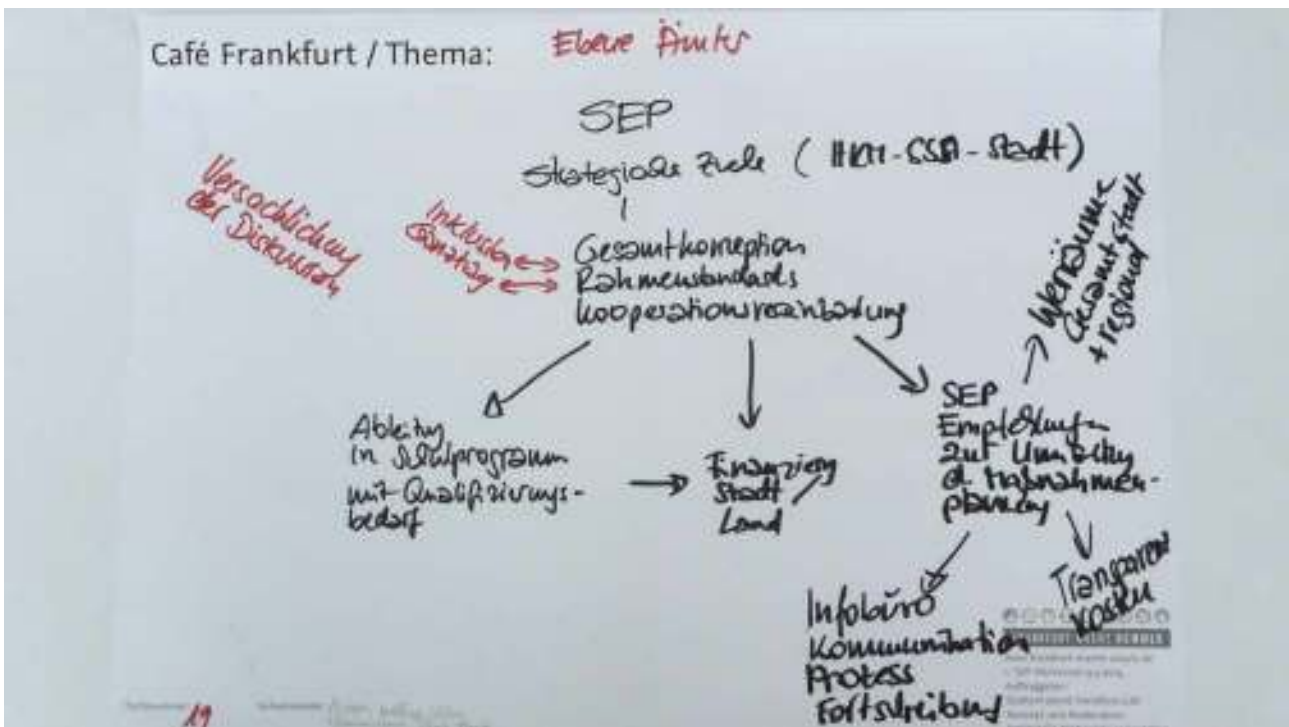 Café Frankfurt / Thema: Ebene Ämter
SEP
Strategische Ziele ( HKM - SSA - Stadt )
Versachlichung
der Diskussion
Inklusion
Ganztag
Gesamtkonzeption
Rahmenstandards
Kooperationsvereinbarung
Ableitung
in Schulprogramm
mit Qualifizierungs-
bedarf
Finanzierung
Stadt /
Land
SEP
Empfehlungen
zur Umsetzung
d. Maßnahmen-
planung
Gesamtstadt
+ regional
Infobüro
Kommunikation
Prozess
Fortschreibung
Transparenz
Kosten
19